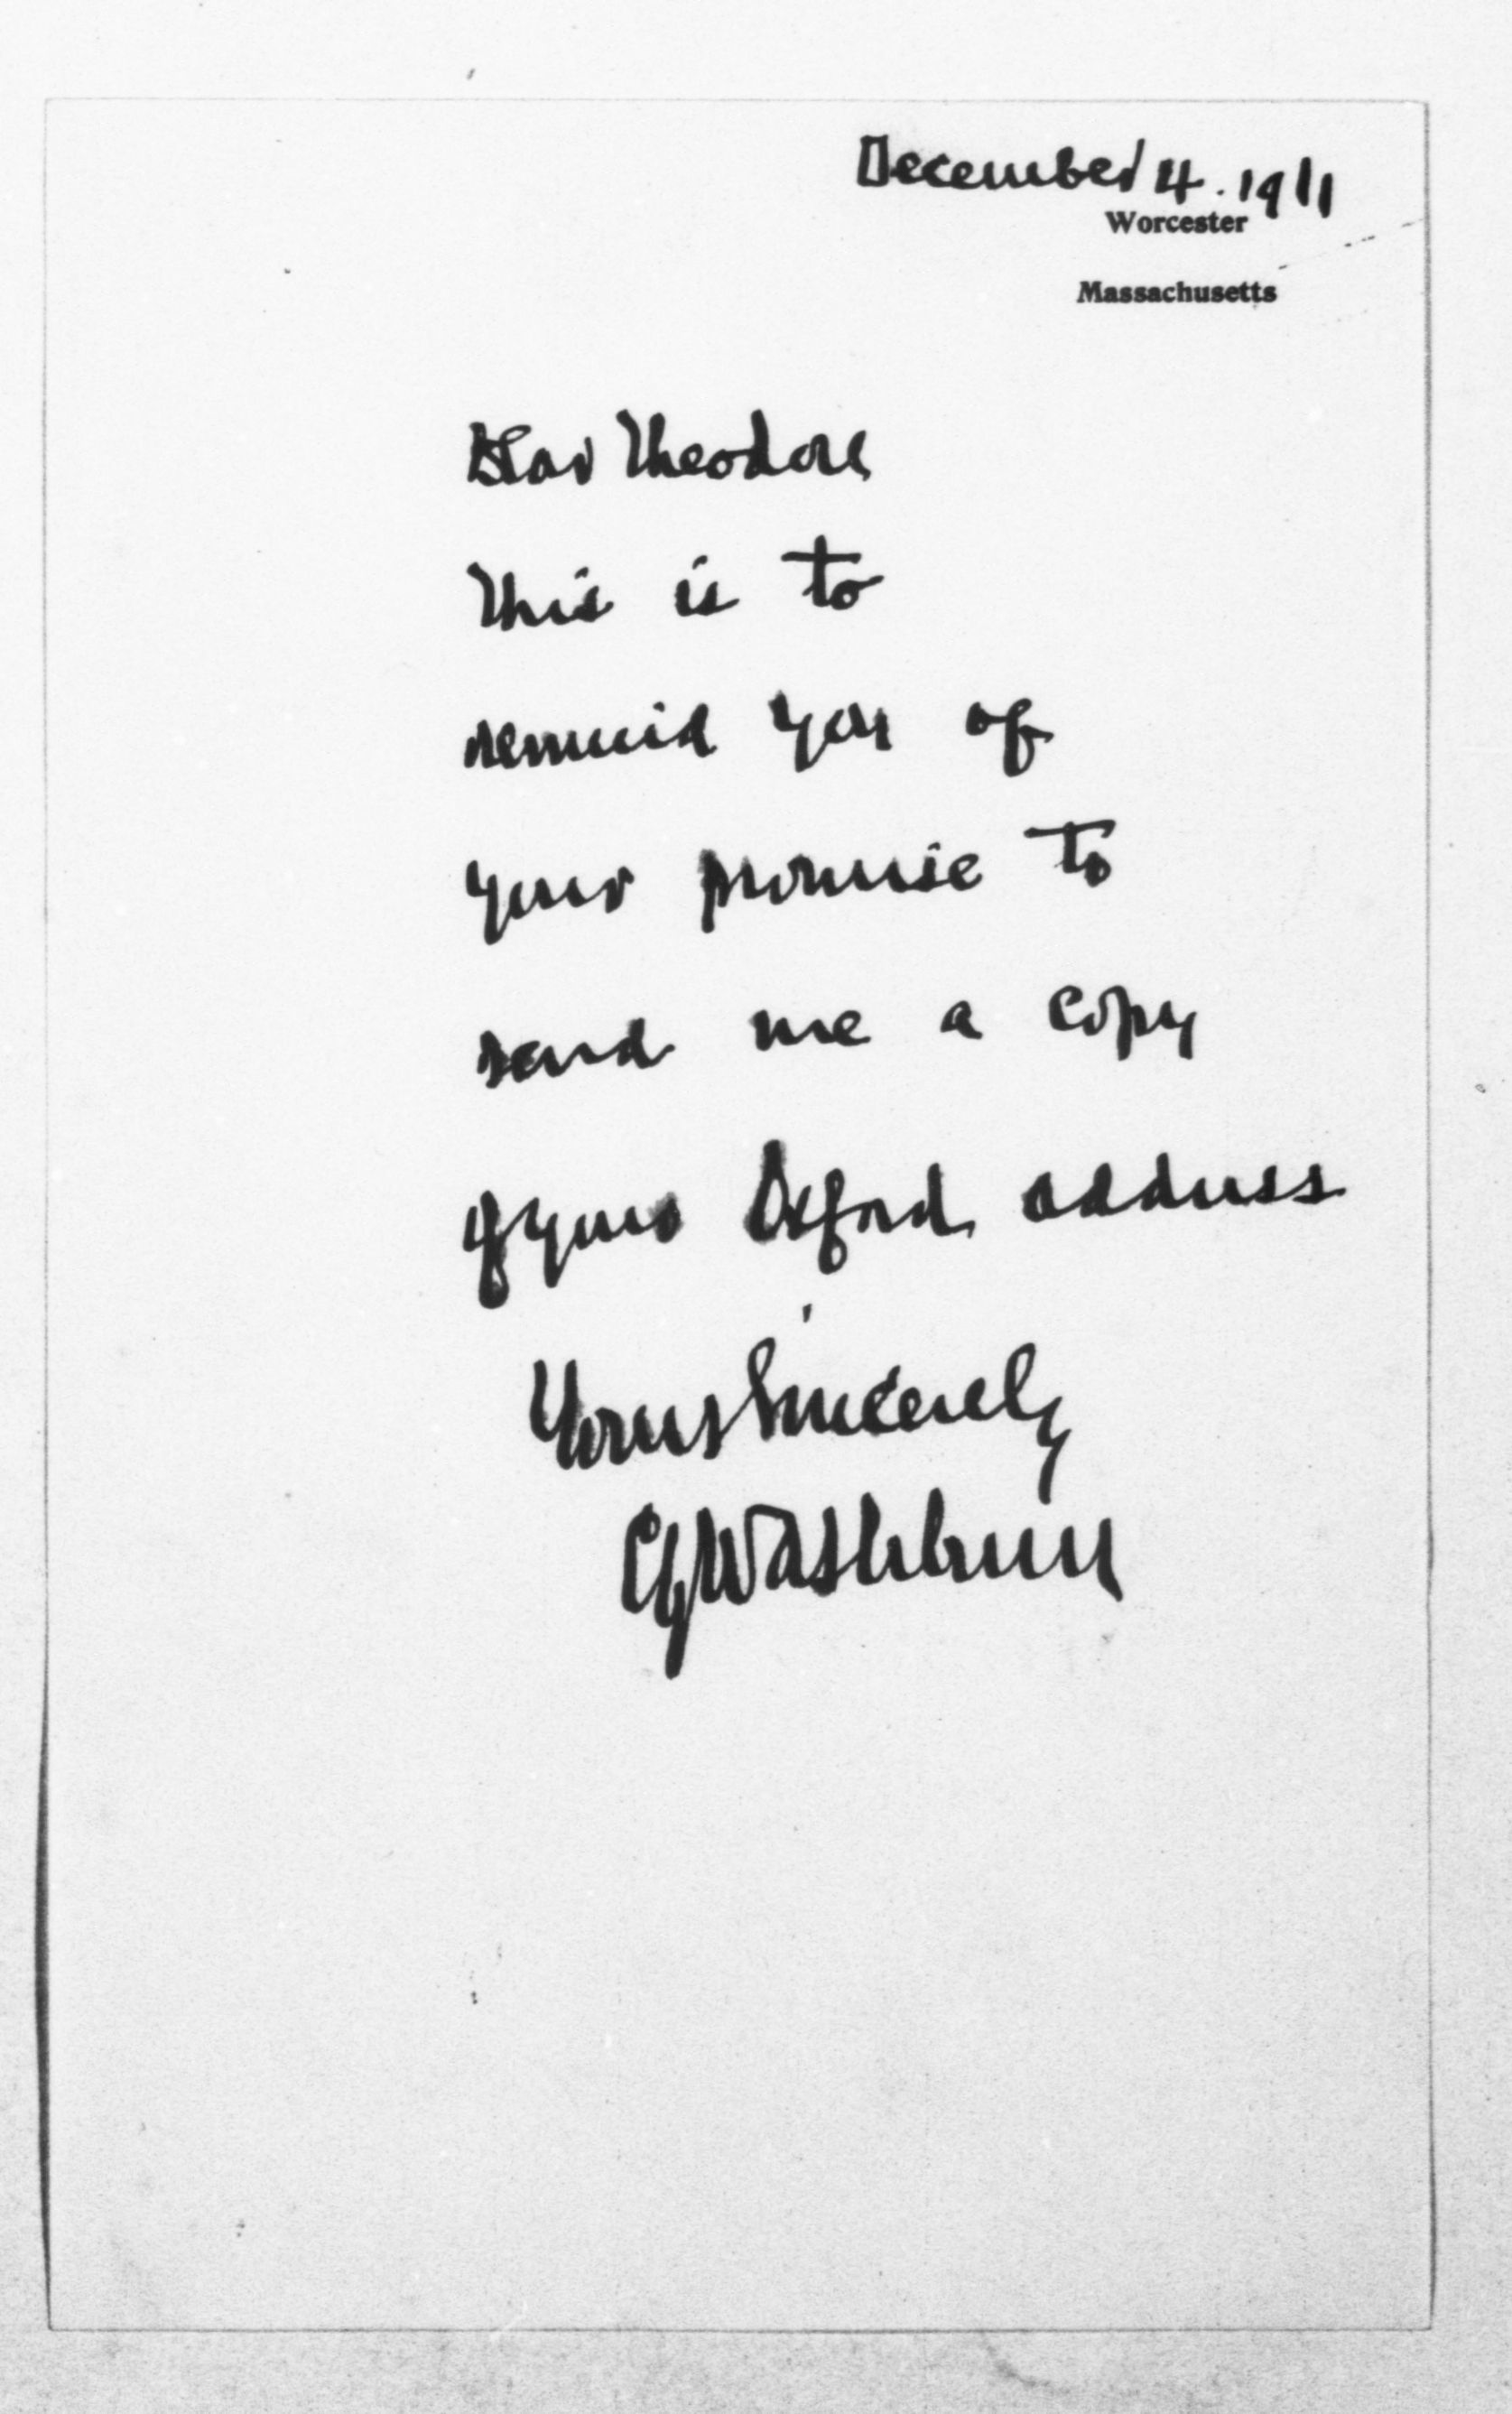 December 4. 1911
Worcester
Massachusetts
Dear Theodore
This is to
remind you of
your promise to
send me a copy
of your Oxford address
Yours Sincerely
CGWashburn